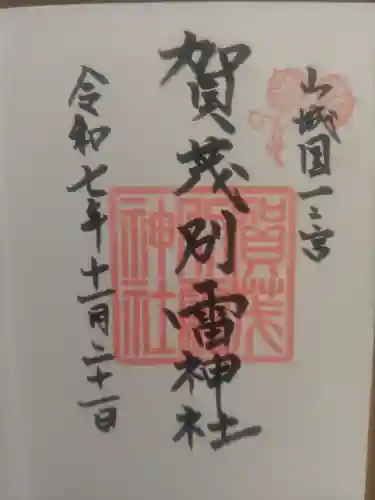 山城国一之宮
賀茂別雷神社
令和七年十一月二十一日
賀茂
別雷
神社